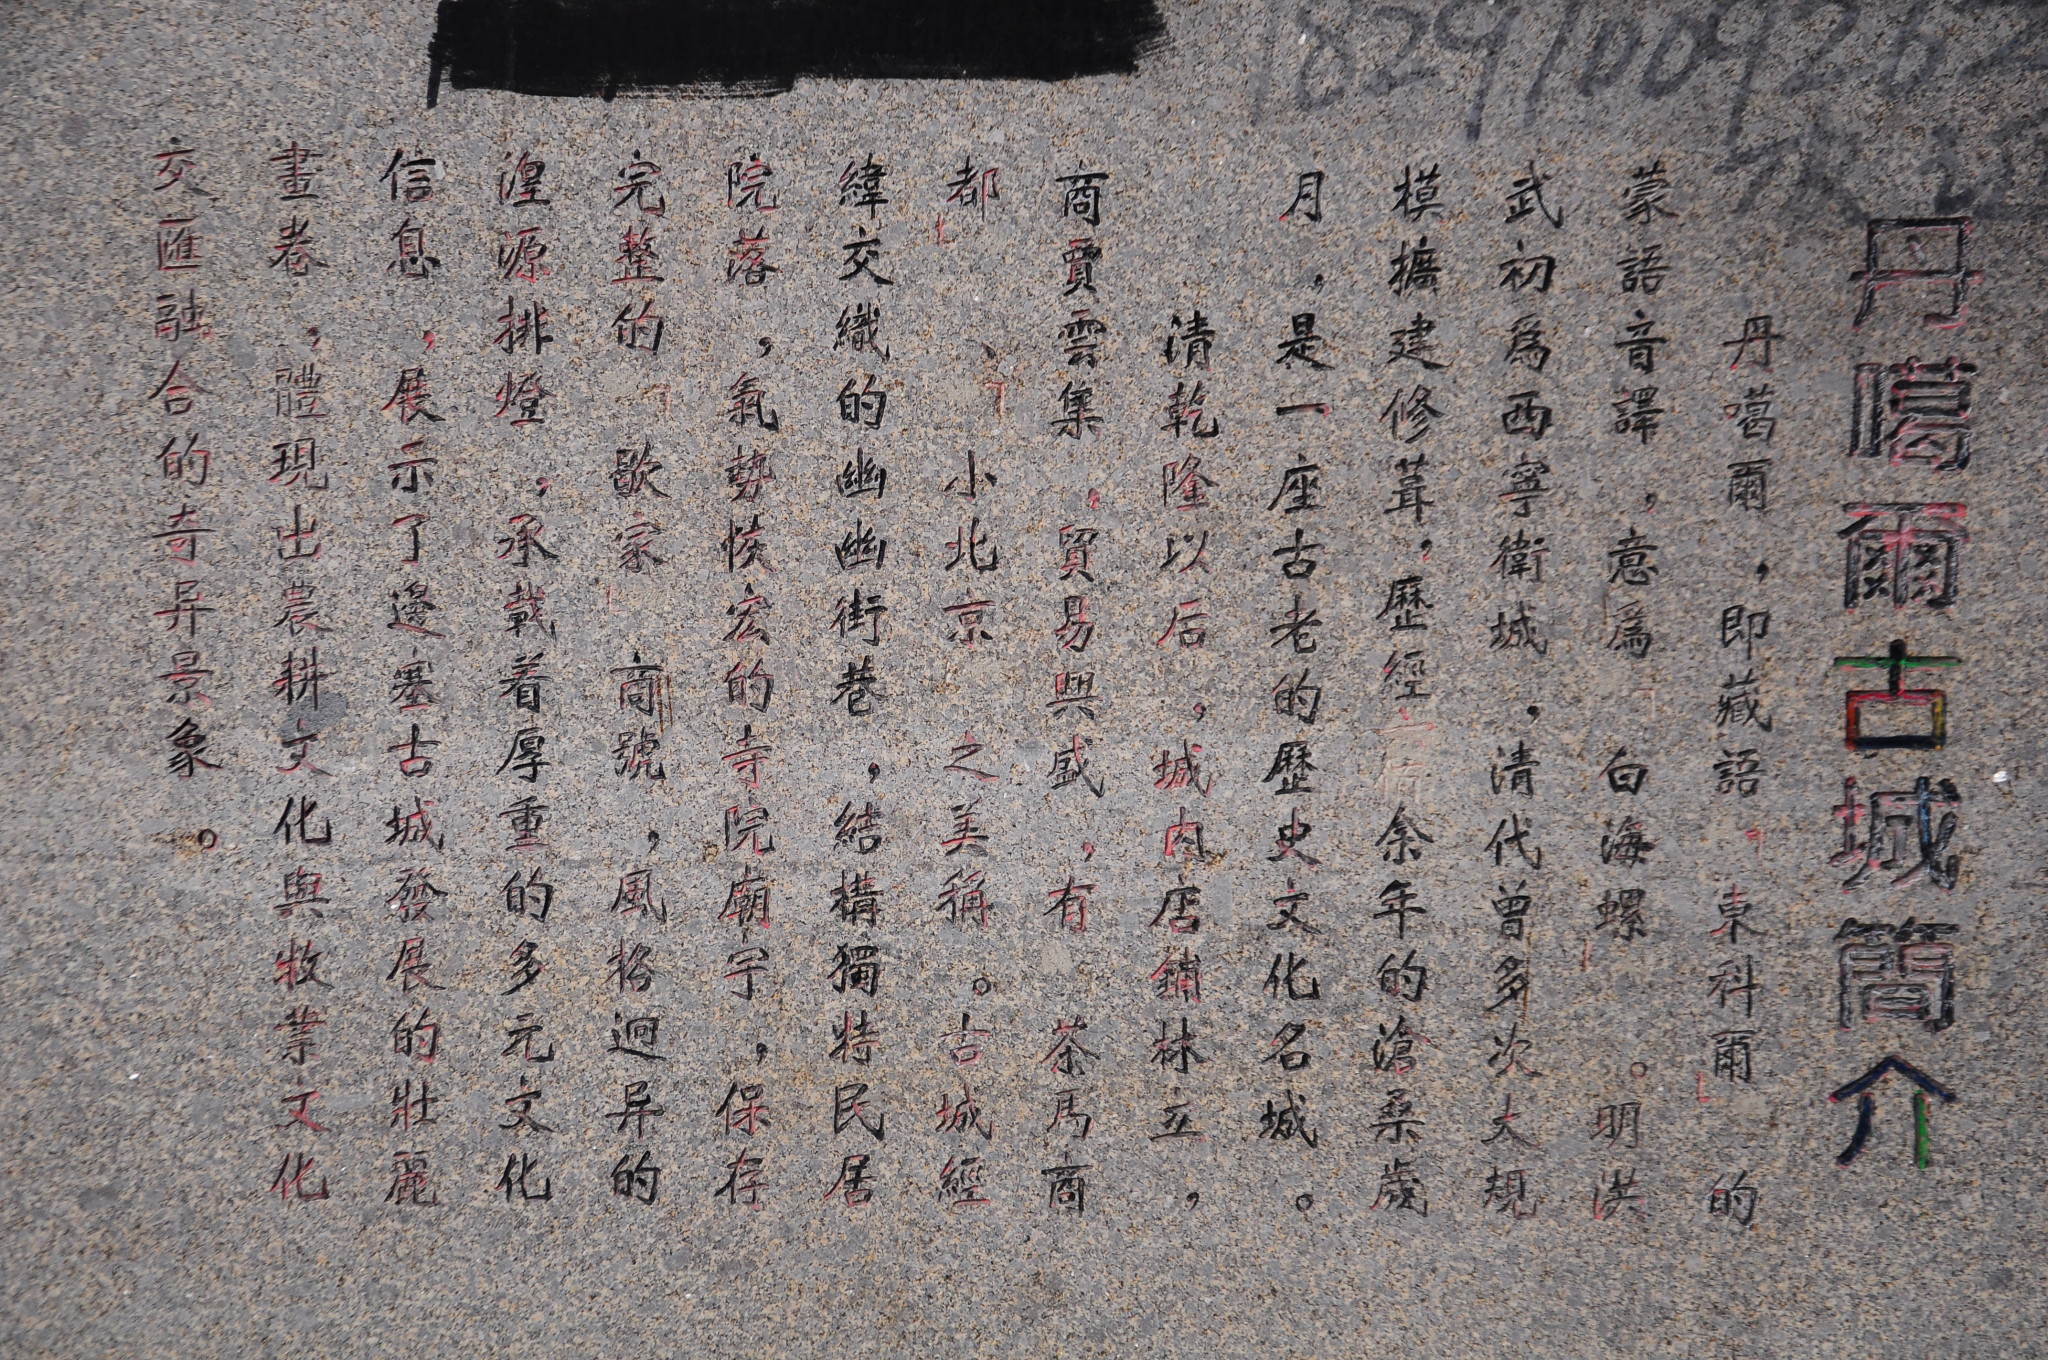 丹噶爾古城簡介
丹噶爾，即藏語「東科爾」的
蒙語音譯，意爲「白海螺」。明洪
武初爲西寧衛城，清代曾多次大規
模擴建修葺，歷經六百余年的滄桑歲
月，是一座古老的歷史文化名城。
清乾隆以后，城内店鋪林立，
商賈雲集，貿易興盛，有「茶馬商
都」、「小北京」之美稱。古城經
緯交織的幽幽街巷，結構獨特民居
院落，氣勢恢宏的寺院廟宇，保存
完整的「歇家」商號，風格迥异的
湟源排燈，承載着厚重的多元文化
信息，展示了邊塞古城發展的壯麗
畫卷，體現出農耕文化與牧業文化
交匯融合的奇异景象。